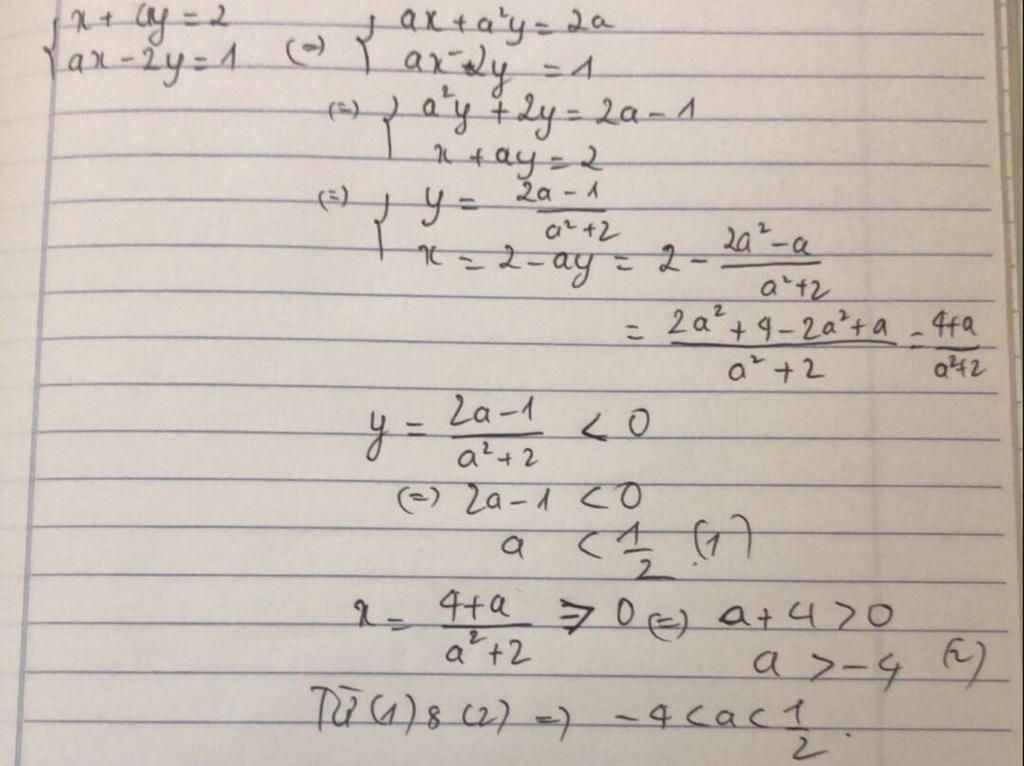 { x + ay = 2 (=) { ax + a²y = 2a
{ ax - 2y = 1 { ax - 2y = 1
(=) { a²y + 2y = 2a - 1
{ x + ay = 2
(=) { y = (2a - 1)/(a² + 2)
{ x = 2 - ay = 2 - (2a² - a)/(a² + 2)
= (2a² + 4 - 2a² + a)/(a² + 2) = (4+a)/(a²+2)
y = (2a - 1)/(a² + 2) < 0
(=) 2a - 1 < 0
a < 1/2 (1)
x = (4+a)/(a² + 2) > 0 (=) a + 4 > 0
a > -4 (2)
Từ (1) & (2) =) -4 < a < 1/2.